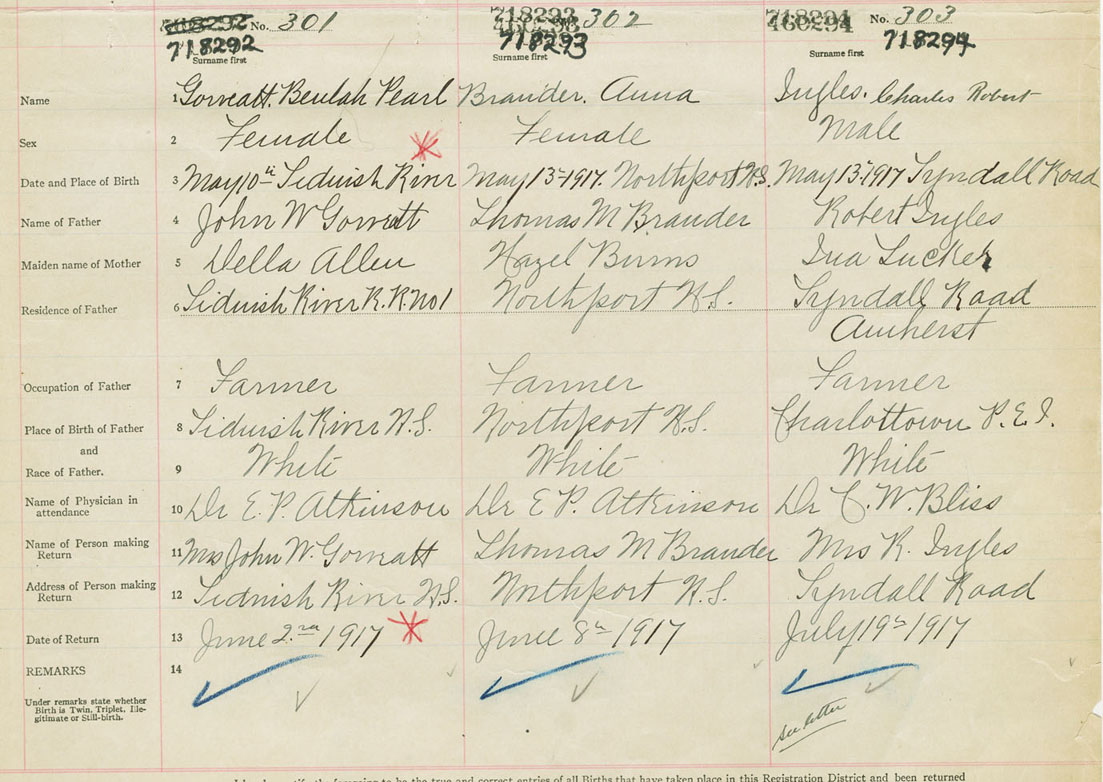 No. 301 No. 302 No. 303
718292 718293 718294
Surname first Surname first Surname first
Name 1 Gowatt. Beulah Pearl Brander. Anna Ingles. Charles Robert
Sex 2 Female Female Male
Date and Place of Birth 3 May 10th Tidnish River May 13th 1917. Northport N.S. May 13th 1917 Tyndall Road
Name of Father 4 John W Gowatt Thomas M Brander Robert Ingles
Maiden name of Mother 5 Della Allen Hazel Burns Ina Tucker
Residence of Father 6 Tidnish River R.R. No 1 Northport N.S. Tyndall Road
Amherst
Occupation of Father 7 Farmer Farmer Farmer
Place of Birth of Father 8 Tidnish River N.S. Northport N.S. Charlottown P.E.I.
and
Race of Father. 9 White White White
Name of Physician in
attendance 10 Dr E.P. Atkinson Dr E P. Atkinson Dr C. W. Bliss
Name of Person making
Return 11 Mrs John W. Gowatt Thomas M Brander Mrs R. Ingles
Address of Person making
Return 12 Tidnish River N.S. Northport N.S. Tyndall Road
Date of Return 13 June 2nd 1917 June 8th 1917 July 19th 1917
REMARKS 14
Under remarks state whether
Birth is Twin, Triplet, Ille-
gitimate or Still-birth.
See letter
the foregoing to be the true and correct entries of all Births that have taken place in this Registration District and been returned